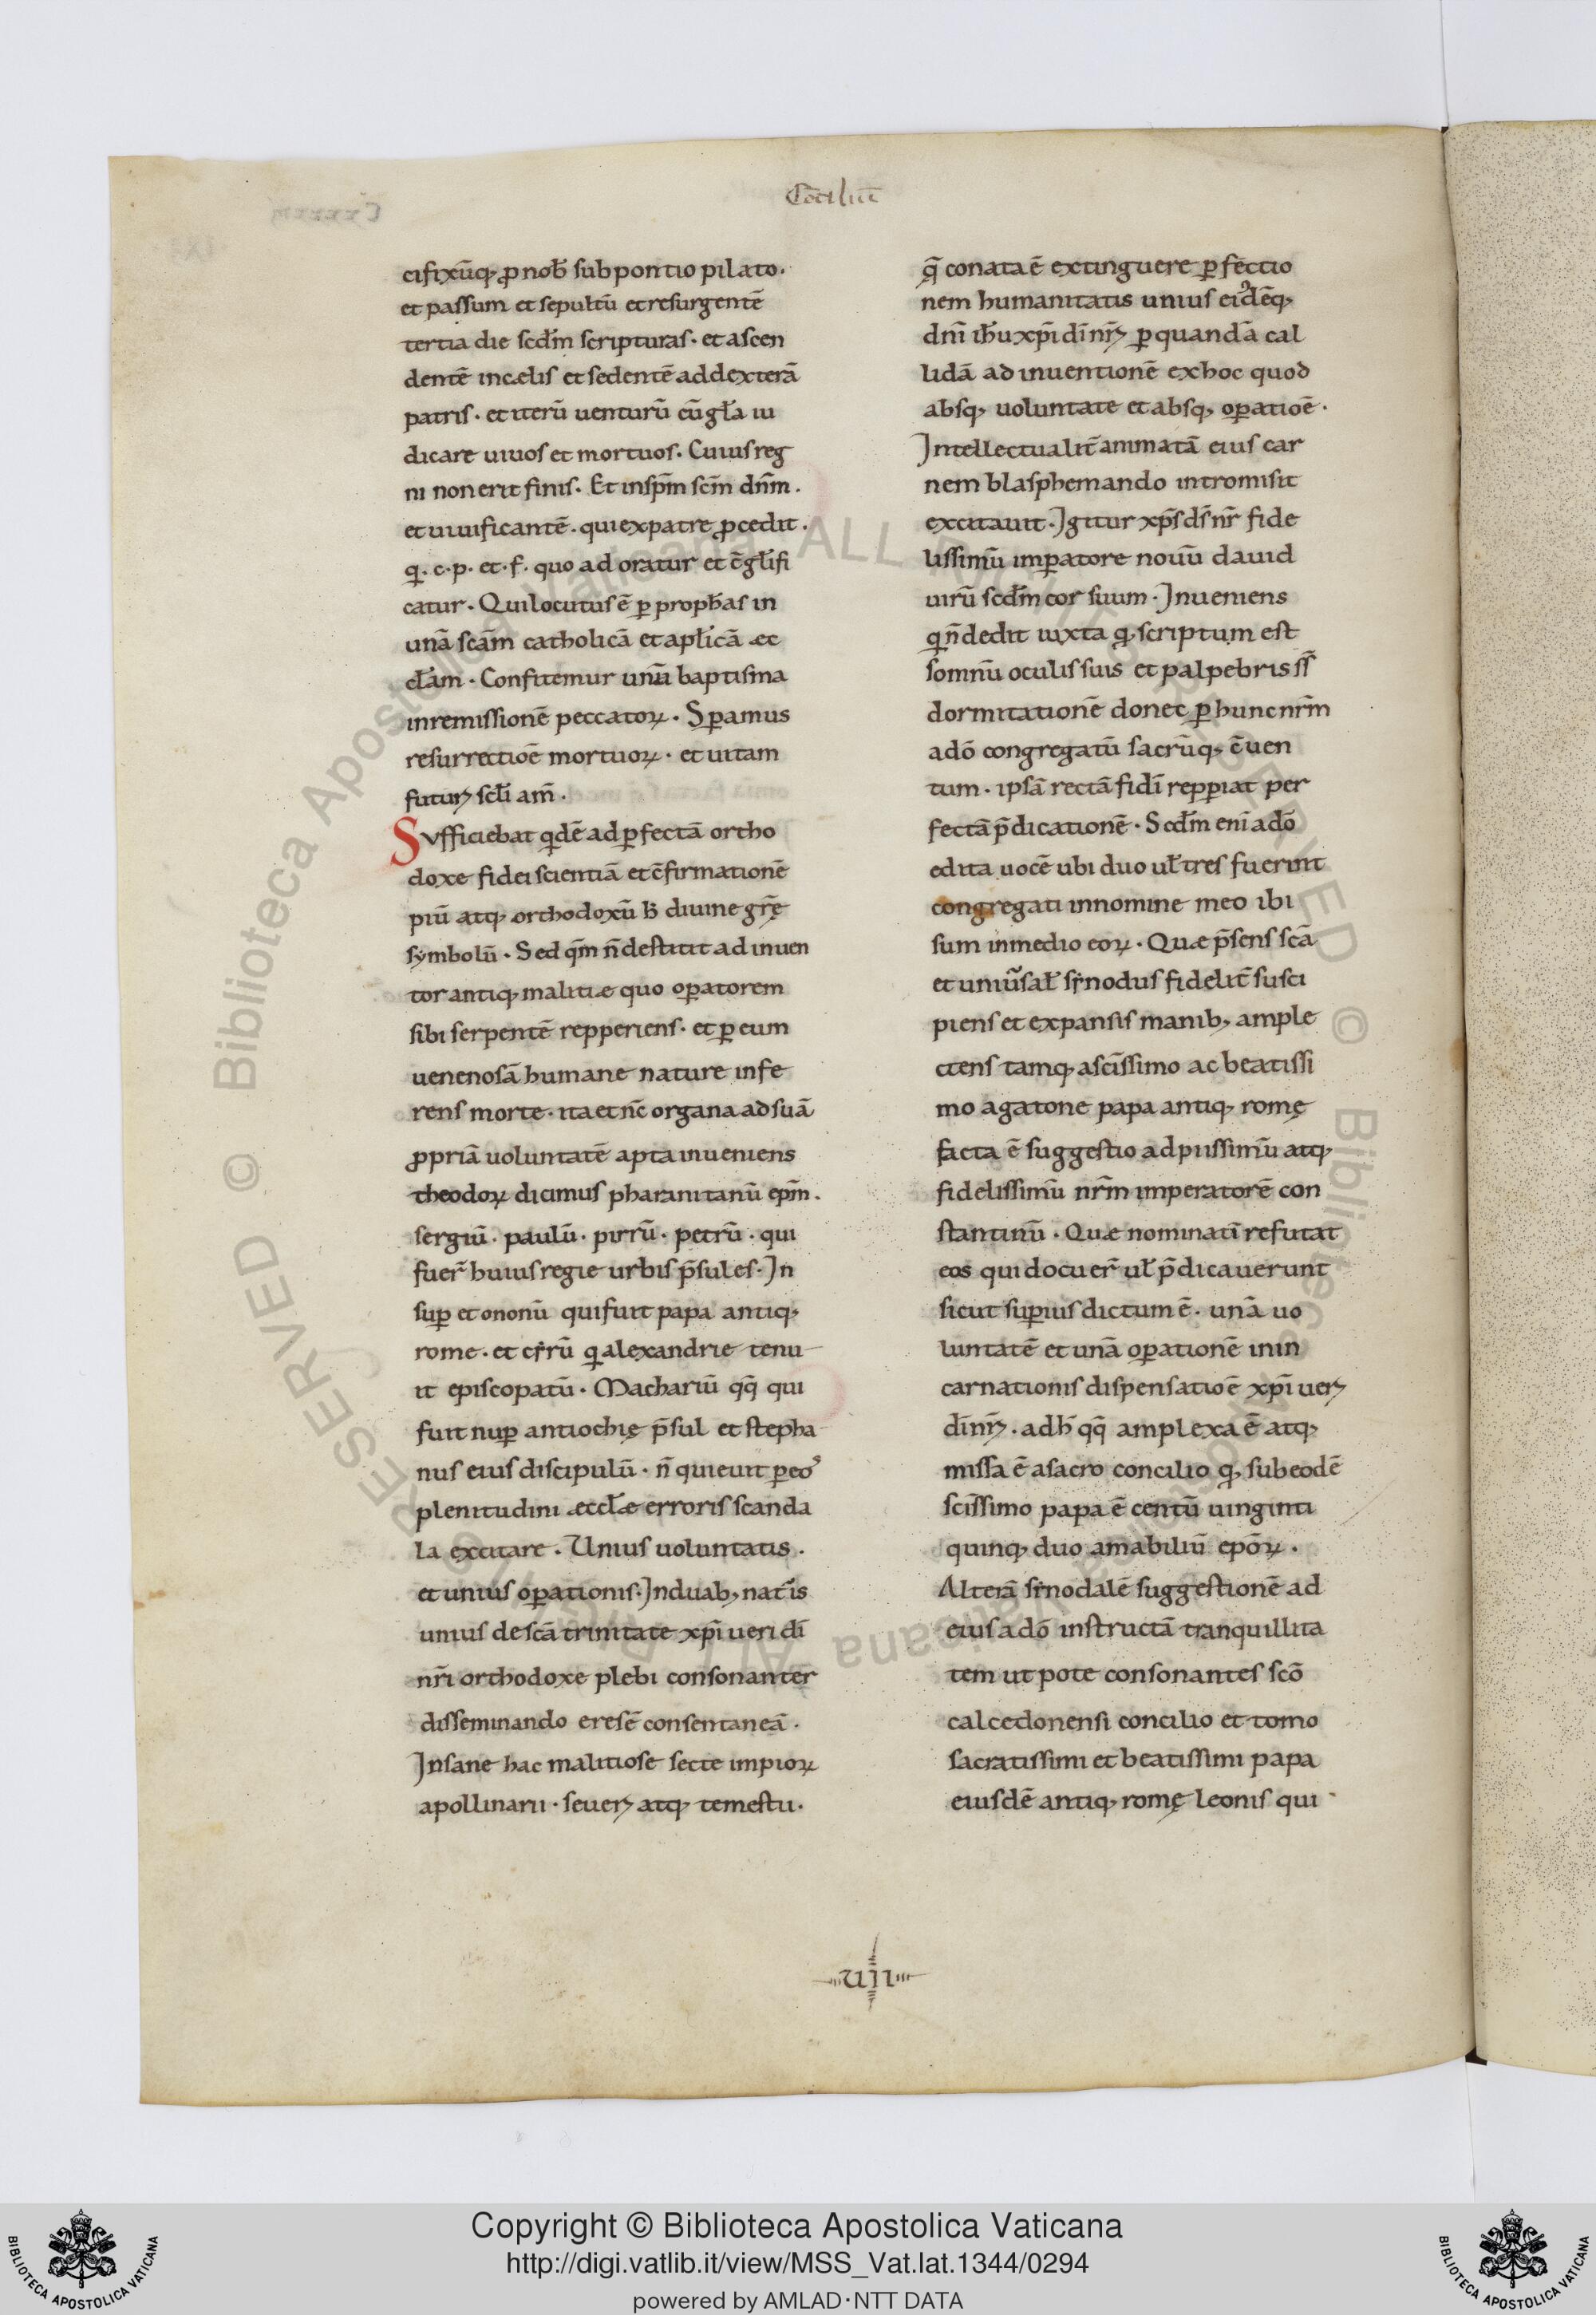 Cōciliū
cifixūq; ꝓ nob̄ sub pontio pilato·
et passum et sepultū et resurgentē
tertia die scd̄m scripturas· et ascen
dentē in cælis et sedentē ad dexterā
patris· et iterū uenturū cū gła iu
dicare uiuos et mortuos· Cuius reg
ni non erit finis· Et in sp̄m sc̄m dn̄m·
et uiuificantē· qui ex patre ꝓcedit·
q̣· c· p· et· f· quo adoratur et c̄głifi
catur· Qui locutus ē ꝑ proph̄as in
unā scām catholicā et apłicā æc
cłam· Confitemur unū baptisma
in remissionē peccatoꝝ· Sꝑamus
resurrectioē mortuoꝝ· et uitam
futuri scłi am̄·
Sufficiebat q̣dē ad ꝑfectā ortho
doxe fidei scientiā et c̄firmationē
piū atq; orthodoxū h̄ diuine grē
symbolū· Sed qm̄ n̄ destitit ad inuen
tor antiq; malitiæ quo oꝑatorem
sibi serpentē repperiens· et ꝑ eum
uenenosā humane nature infe
rens morte· ita et nc̄ organa ad suā
ꝓpriā uoluntatē apta inueniens
theodoꝝ dicimus pharanitanū ep̄m·
sergiū· paulū· pirrū· petrū· qui
fuer̄ huius regie urbis p̄sules· In
suꝑ et ononū qui fuit papa antiq;
rome· et cyrū q̣ alexandrie tenu
it episcopatū· Machariū qq̄ qui
fuit nuꝑ antiochię p̄sul et stepha
nus eius discipulū· n̄ quieuit ꝑ eo᾽
plenitudini æccłæ erroris scanda
la excitare· Unius uoluntatis·
et unius oꝑationis· In duab; nat̃is
unius de scā trinitate xp̄i ueri dī
nr̄i orthodoxe plebi consonanter
disseminando eresē consentaneā·
Insane hac malitiose secte impioꝝ
apollinarii· seueri atq; temestii·
q̄ conata ē extinguere ꝑfectio
nem humanitatis unius eiꝰdēq;
dn̄i ih̄u xp̄i dī nr̄i ꝑ quandā cal
lidā ad inuentionē ex hoc quod
absq; uoluntate et absq; oꝑatioē·
Intellectualit̄ animatā eius car
nem blasphemando intromisit
excitauit· Igitur xp̄s ds̄ nr̄ fide
lissimū imꝑatore nouū dauid
uirū scd̄m cor suum· Inueniens
q̣ n̄ dedit iuxta q; scriptum est
somnū oculis suis et palpebris ss̄
dormitationē donec ꝑ hunc nr̄m
a dō congregatū sacrūq; c̄uen
tum· ipsā rectā fidī repꝑiat per
fectā p̄dicationē· Scd̄m eni a dō
edita uocē ubi duo uł tres fuerint
congregati in nomine meo ibi
sum in medio eoꝝ· Quæ p̄sens scā
et uniūsał synodus fidelit̄ susci
piens et expansis manib; ample
ctens tamq; a sc̄issimo ac beatissi
mo agatone papa antiq; romę
facta ē suggestio ad piissimū atq;
fidelissimū nr̄m imperatorē con
stantinū· Quæ nominatī refutat
eos qui docuer̄ uł p̄dicauerunt
sicut suꝑius dictum ē· unā uo
luntatē et unā oꝑationē in in
carnationis dispensatioē xp̄i ueri
dī nr̄i· adh̄ qq̄ amplexa ē atq;
missa ē a sacro concilio q; sub eodē
scīssimo papa ē centū uinginti
quinq; duo amabiliū epōꝝ·
Alterā synodalē suggestionē ad
eius a dō instructā tranquillita
tem ut pote consonantes scō
calcedonensi concilio et tomo
sacratissimi et beatissimi papa
eiusdē antiq; romę leonis qui
uiii
Copyright © Biblioteca Apostolica Vaticana
http://digi.vatlib.it/view/MSS_Vat.lat.1344/0294
powered by AMLAD·NTT DATA